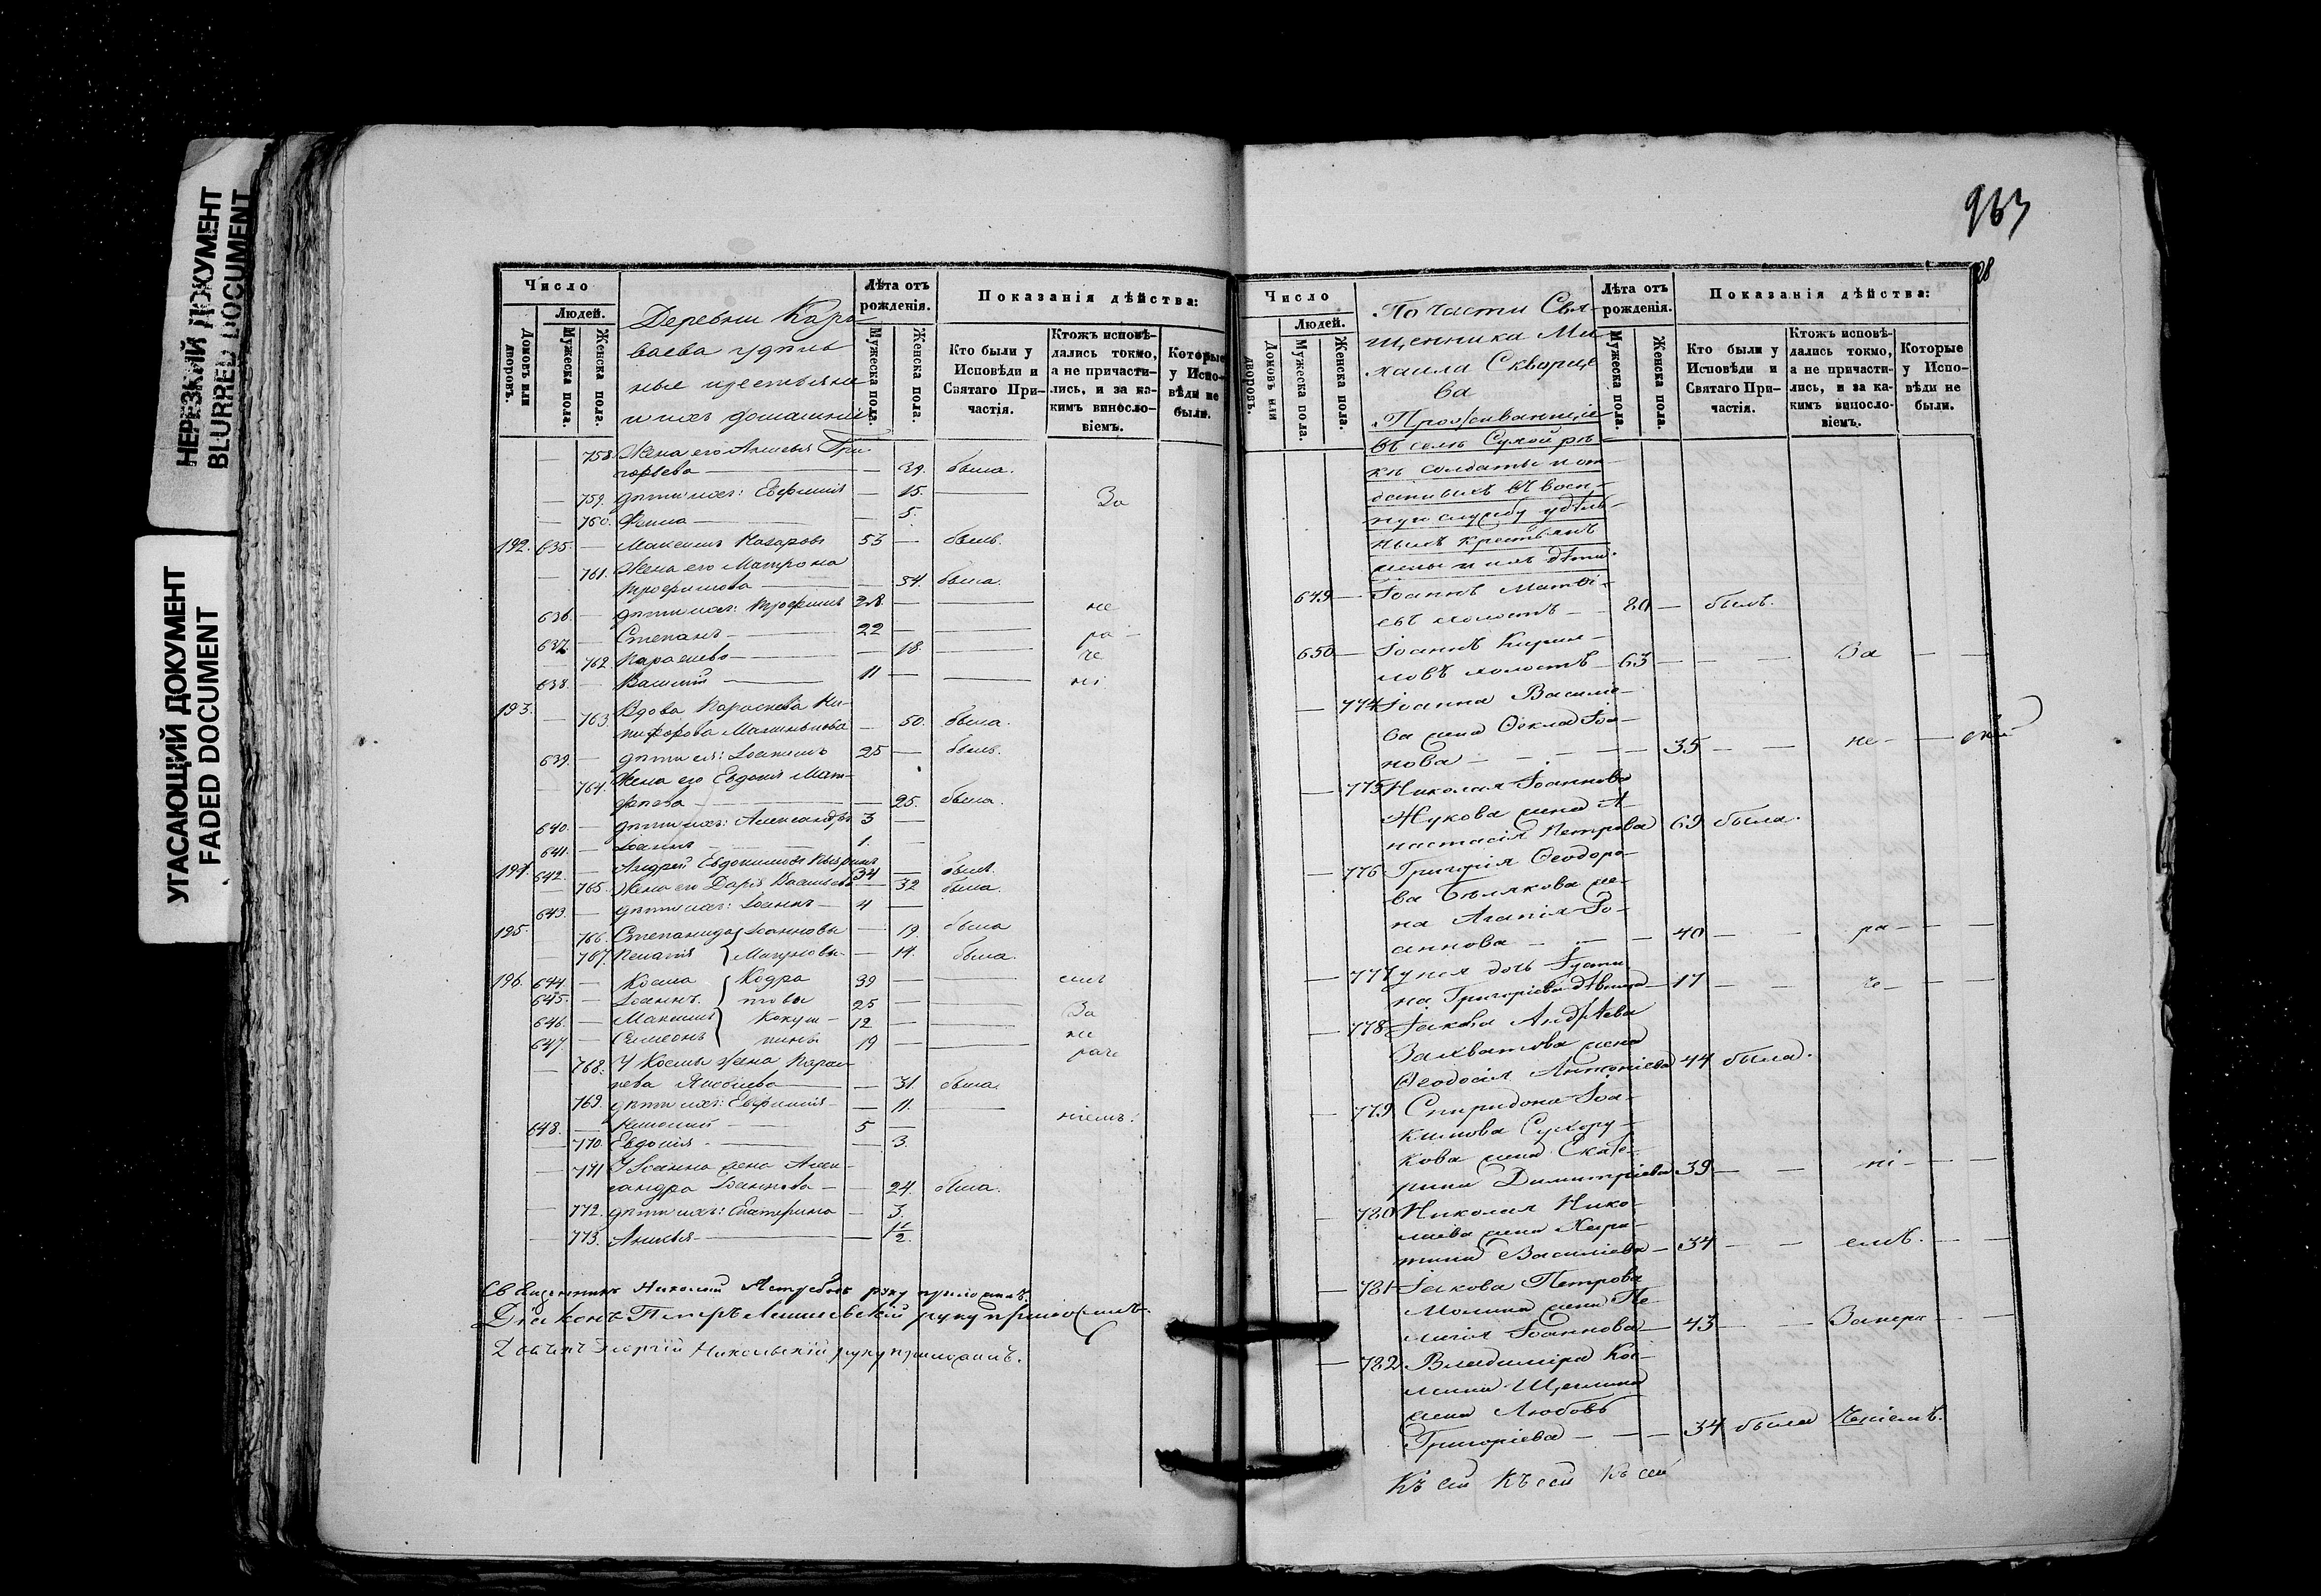 НЕРЕЗКИЙ ДОКУМЕНТ
BLURRED DOCUMENT
УГАСАЮЩИЙ ДОКУМЕНТ
FADED DOCUMENT
Число
Людей.
Домовъ или дворовъ.
Мужеска пола.
Женска пола.
Деревни Кара-
ваева удѣль
ные крестьяне
и ихъ домашніе
Лѣта отъ рожденія.
Мужеска пола.
Женска пола.
Показанія дѣйства:
Кто были у Исповѣди и Святаго При-частія.
Ктожъ исповѣ-дались токмо, а не причасти-лись, и за ка-кимъ винословіемъ.
Которые у Испо-вѣди не были.
— 758. Жена его Анисья Гри-
горьева — — 39. была.
— 759. дѣти ихъ: Евфимія — 15. — За
— 760. Фекла — — 5.
192. 635. — Максимъ Назаровъ 53 — былъ.
— 761. Жена его Матрона
Трофимова — — 54. была.
636. — дѣти ихъ: Трофимъ 28. — — не
637. — Степанъ — 22 — — ра
— 762. Параскева — — 18. — че
638. — Василій — 11 — — ні
193. — 763. Вдова Параскева Ни-
кифорова — 50. была.
639. — дѣти ея: Іоакимъ 25 — былъ.
— 764. Жена его Евдокія Мат-
фѣева — — 25. была.
640. — дѣти ихъ: Александръ 3 —
641. — Іоаннъ — 1. —
194. 642. — Андрей Евдокимовъ 34 — былъ.
— 765. Жена его Дарія Васильева — 32 была.
643. — дѣти ихъ: Іоаннъ — 4 —
195. — 766. Степанида Іоанновы — 19. была
— 767. Пелагія — 14. была.
196. 644. — Косма Кодра 39 — — емъ
645. — Іоаннъ товы 25 — — За
646. — Максимъ 12 — — не
647. — Симеонъ 19 — — раче
— 768. У Космы жена Парас-
кева Яковлева — — 31. была.
— 769. дѣти ихъ: Евфимія — — 11. — ніемъ.
648. — 5 —
— 770. Евдокія — — 3.
— 771 У Іоанна жена Алек-
сандра Іоаннова — — 24. была.
— 772. дѣти ихъ: Екатерина — 3.
— 773. Анисья — — 1/2.
Священникъ Николай Ястребовъ руку приложилъ.
Діаконъ Петръ руку приложилъ.
Георгій Никольскій руку приложилъ.
963
Число
Людей.
Домовъ или дворовъ.
Мужеска пола.
Женска пола.
По части Свя-
щенника Ми-
хаила Скворцо
ва
Проживающіе
въ селѣ Сухой рѣ-
кѣ солдаты и от-
давшихъ въ воен-
ную службу удѣль-
ныхъ крестьянъ
жены и ихъ дѣти.
Лѣта отъ рожденія.
Мужеска пола.
Женска пола.
Показанія дѣйства:
Кто были у Исповѣди и Святаго При-частія.
Ктожъ исповѣ-дались токмо, а не причасти-лись, и за ка-кимъ винословіемъ.
Которые у Испо-вѣди не были.
649 — Іоаннъ Матѳі-
евъ холостъ — 80 — былъ.
650 — Іоаннъ Кирил-
ловъ холостъ — 63 — — — За — —
— 774 Іоанна Василіе-
ва жена Ѳекла Іоа-
нова — — — 35 — — не —
— 775 Николая Іоаннова
Жукова жена А-
настасія Петрова 69 была.
— 776 Григорія Ѳеодоро-
ва Бѣлякова же-
на Агапія Іо-
аннова — — — 40 — — ра — —
— 777 у нея дочь Іусти-
на Григоріева дѣвица — 17 — — че — —
— 778 Іакова Андреева
Захватова жена
Ѳеодосія Антоніева 44 была.
— 779 Спиридона Іоа-
кимова Сухору-
кова жена Екате-
рина Димитріева 39 — — ні — —
— 780 Николая Нико-
лаева жена Хари-
тина Василіева — 34 — — емъ. — —
— 781 Іакова Петрова
Молина жена Пе-
лагія Іоаннова — 43 — — Занера — —
— 782 Владиміра Кос-
мина Щеглина
жена Любовь
Григоріева — — — 34 была ченіемъ.
Къ сей Къ сей Къ сей